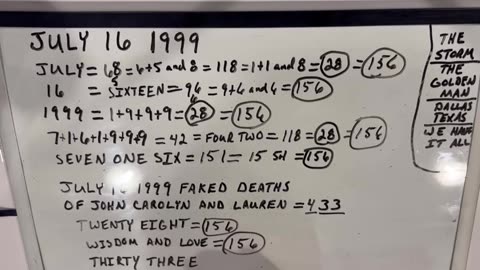 JULY 16 1999
JULY = 68 = 6+5 and 8 = 118 = 1+1 and 8 = 28 = 156
16 = SIXTEEN = 96 = 9+6 and 6 = 156
1999 = 1+9+9+9 = 28 = 156
7+1+6+1+9+9+9 = 42 = FOUR TWO = 118 = 28 = 156
SEVEN ONE SIX = 151 = 15 SH = 156
JULY 16 1999 FAKED DEATHS
OF JOHN CAROLYN AND LAUREN = 433
TWENTY EIGHT = 156
WISDOM AND LOVE = 156
THIRTY THREE
THE
STORM
THE
GOLDEN
MAN
DALLAS
TEXAS
WE HAVE
IT ALL